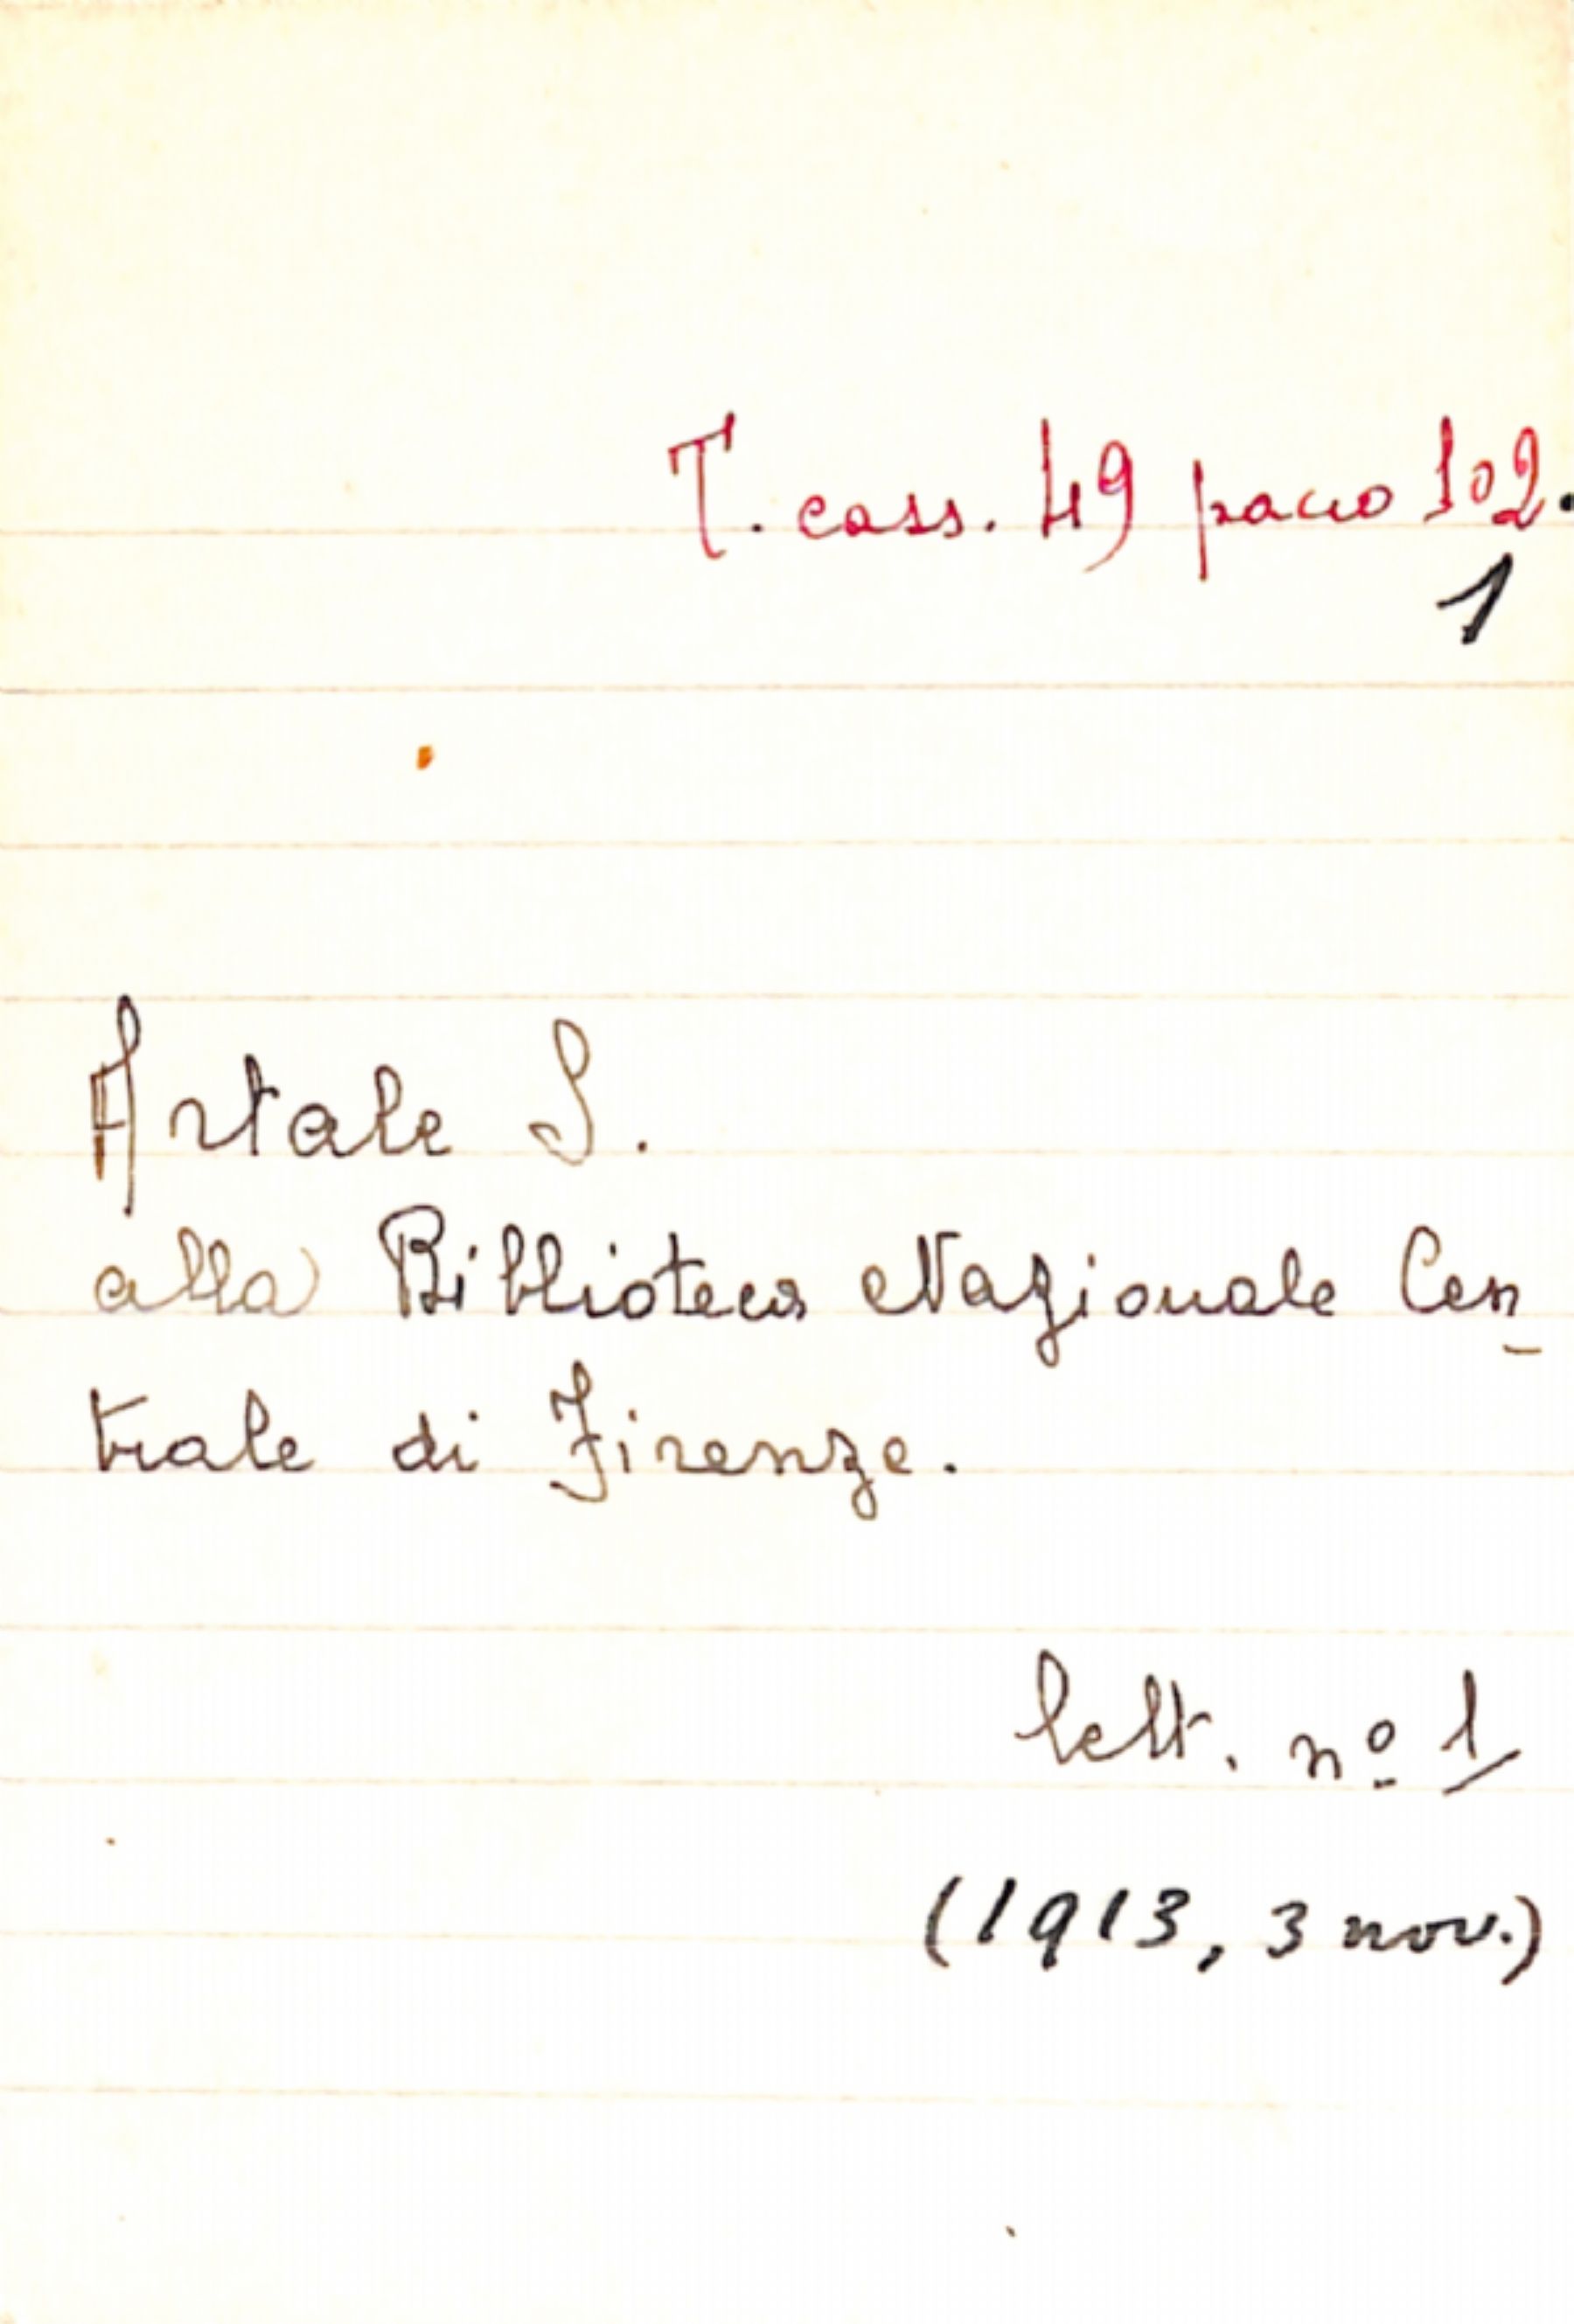 T. cass. 49 pacco 102.
1
Artale S.
alla Biblioteca Nazionale Cen_
trale di Firenze.
lett. nº 1
(1913, 3 nov.)